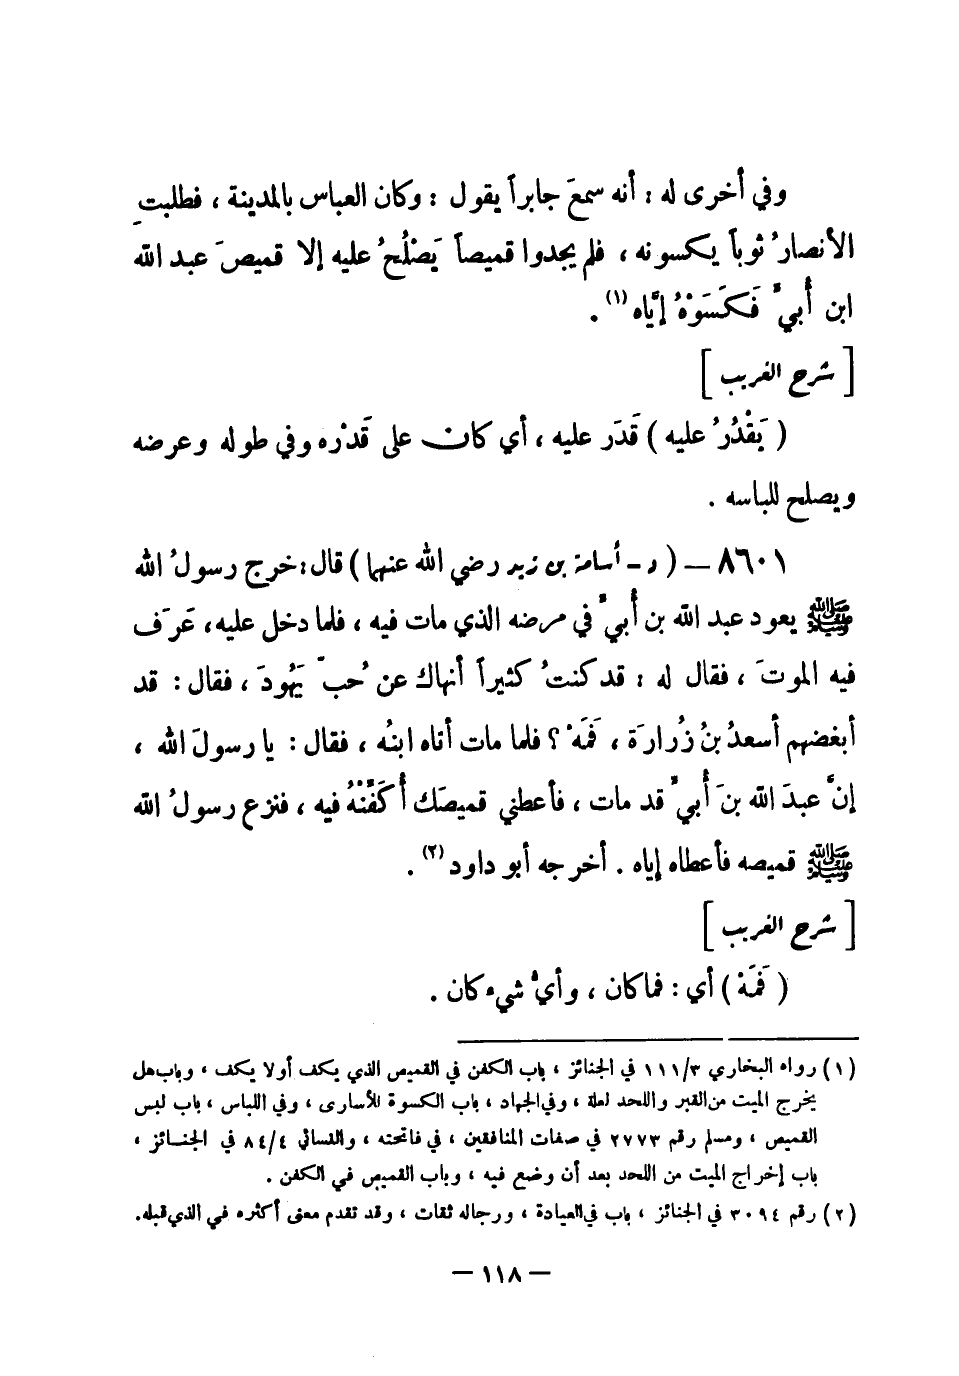 وفي أخرى له : أنه سمعَ جابراً يقول : وكان العباس بالمدينة ، فطلبتِ
الأنصارُ ثوباً يكسونه ، فلم يجدوا قميصاً يَصْلُحُ عليه إلا قميصَ عبد الله
ابن أُبيٍّ فَكَسَوْهُ إيَّاه (١) .
[ شرح الغريب ]
( يَقْدُرُ عليه ) قَدَر عليه ، أي كان على قَدْره وفي طوله وعرضه
ويصلح للباسه .
٨٦٠١ – ( د - أسامة بن زيد رضي الله عنهما ) قال : خرج رسولُ الله
ﷺ يعود عبد الله بن أُبيٍّ في مرضه الذي مات فيه ، فلما دخل عليه ، عَرَف
فيه الموتَ ، فقال له : قد كنتُ كثيراً أنهاك عن حُبِّ يَهُودَ ، فقال : قد
أبغضهم أسعدُ بنُ زُرارَة ، فَمَهْ ؟ فلما مات أتاه ابنُه ، فقال : يا رسولَ الله ،
إنَّ عبدَ الله بنَ أُبيٍّ قد مات ، فأعطني قميصَك أُكَفِّنْهُ فيه ، فنزع رسولُ الله
ﷺ قميصه فأعطاه إياه . أخرجه أبو داود (٢) .
[ شرح الغريب ]
( فَمَهْ ) أي : فما كان ، وأيُّ شيء كان .
(١) رواه البخاري ٣/١١١ في الجنائز ، باب الكفن في القميص الذي يكف أو لا يكف ، وباب هل
يخرج الميت من القبر واللحد لعلة ، وفي الجهاد ، باب الكسوة للأسارى ، وفي اللباس ، باب لبس
القميص ، ومسلم رقم ٢٧٧٣ في صفات المنافقين ، في فاتحته ، والنسائي ٤/٨٤ في الجنائز ،
باب إخراج الميت من اللحد بعد أن وضع فيه ، وباب القميص في الكفن .
(٢) رقم ٣٠٩٤ في الجنائز ، باب في العيادة ، ورجاله ثقات ، وقد تقدم معنى أكثره في الذي قبله .
– ١١٨ –